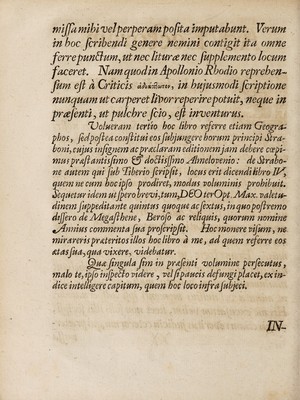 missa mihi vel perperam posita imputabunt. Verum
in hoc scribendi genere nemini contigit ita omne
ferre punctum, ut nec lituræ nec supplemento locum
faceret. Nam quod in Apollonio Rhodio reprehen-
sum est à Criticis in hujusmodi scriptione
nunquam ut carperet livor reperire potuit, neque in
præsenti, ut pulchre scio, est inventurus.
Volueram tertio hoc libro referre etiam Geogra-
phos, sed postea constitui eos subjungere horum principi Stra-
boni, cujus insignem ac præclaram editionem jam debere cœpi-
mus præstantissimo & doctissimo Almelovenio: de Strabo-
ne autem qui sub Tiberio scripsit, locus erit dicendi libro IV,
quem ne cum hoc ipso prodiret, modus voluminis prohibuit.
Sequetur idem ut spero brevi, tum, DEO ter Opt. Max. valetu-
dinem suppeditante quintus quoque ac sextus, in quo postremo
dissero de Megasthene, Beroso ac reliquis, quorum nomine
Annius commenta sua proscripsit. Hoc monere visum, ne
mireris præteritos illos hoc libro à me, ad quem referre eos
ætas sua, qua vixere, videbatur.
Quæ singula sim in præsenti volumine persecutus,
malo te, ipso inspecto videre, vel si paucis defungi placet, ex in-
dice intelligere capitum, quem hoc loco infra subjeci.
IN-